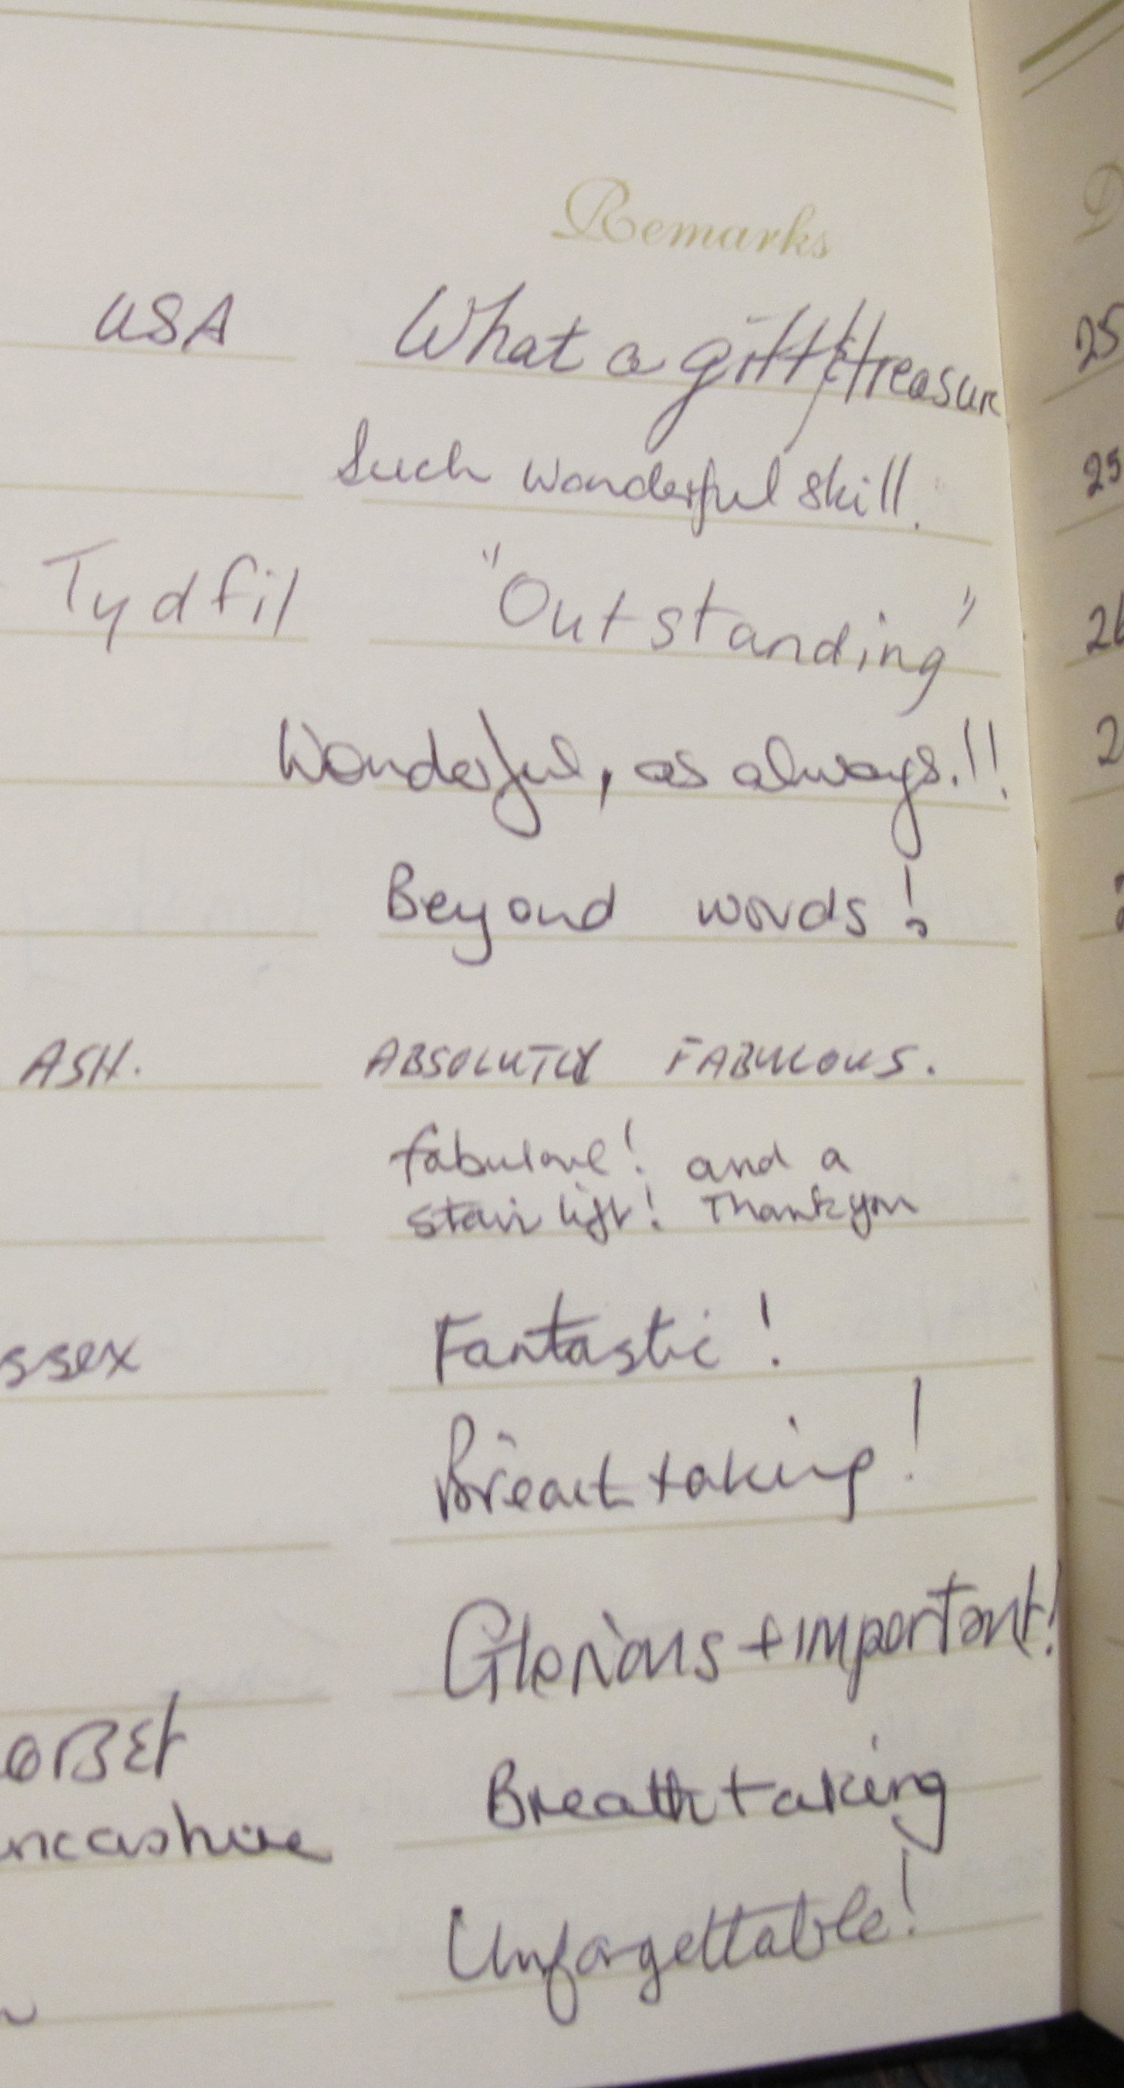 Remarks
USA What a gift/treasure
Such wonderful skill.
Tydfil "Outstanding"
Wonderful, as always.!!
Beyond words!
ASH. ABSOLUTLY FABULOUS.
and a
stair lift! Thank you
ssex Fantastic!
Breathtaking!
Glorious + important!
ORBET
ncashire Breathtaking
Unforgettable!
25
25
2